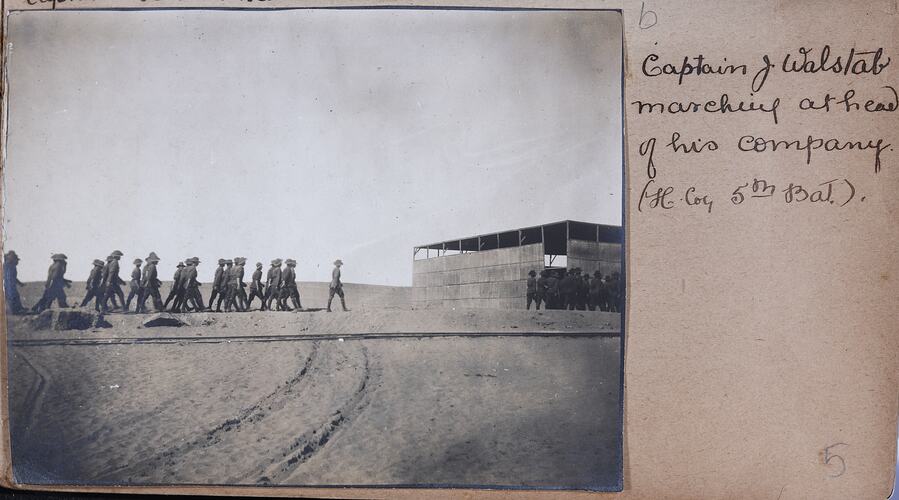 b
Captain J Walstab
marching at head
of his company.
(H. Coy 5th Bat.).
5